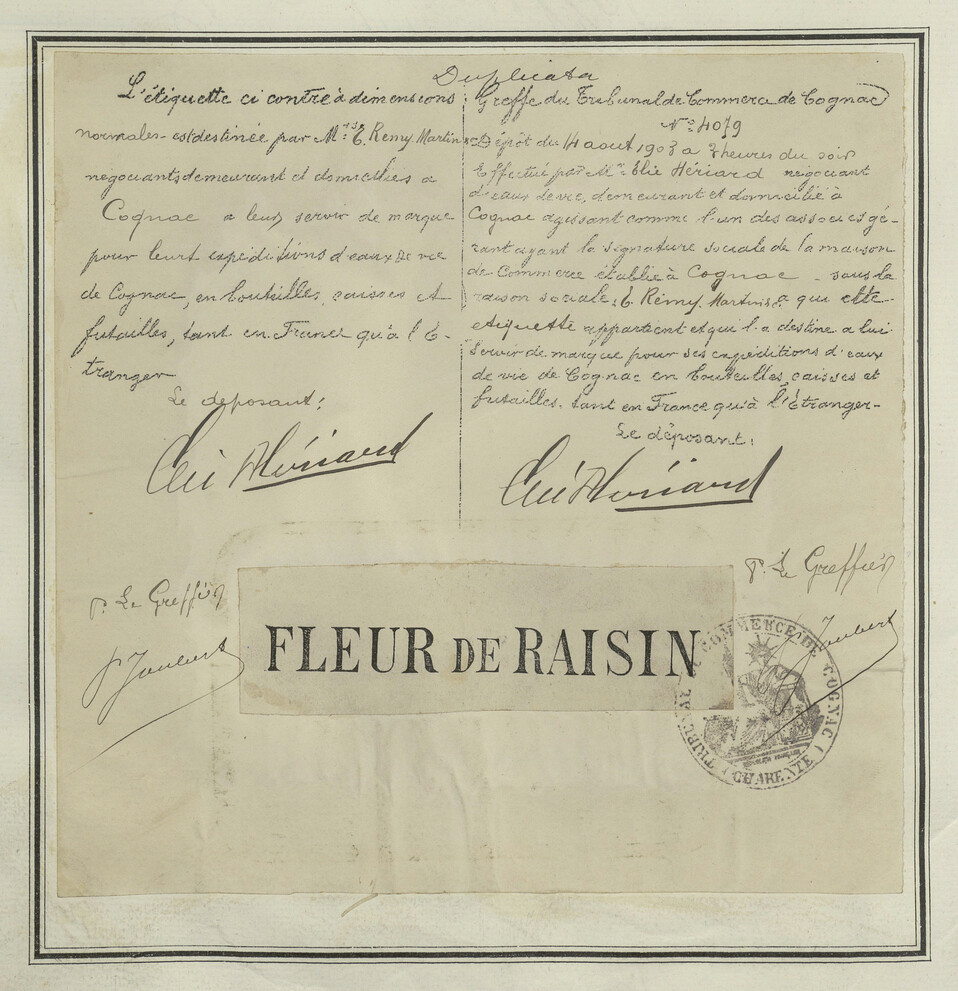 Duplicata
L'étiquette ci contre à dimensions
normales est destinée par Mrs E. Remy Martin
négociants demeurant et domiciliés a
Cognac a leur servir de marque
pour leurs expéditions d'eaux de vie
de Cognac, en bouteilles, caisses et
futailles, tant en France qu'à l'É-
tranger
Le deposant:
Elie Hériard
Greffe du Tribunal de Commerce de Cognac
N° 4079
Dépôt du 14 aout 1903 a 3 heures du soir
Effectué par Mr Élie Hériard negociant
d'eaux de vie, demeurant et domicilié à
Cognac agissant comme l'un des associés gé-
rant ayant la signature sociale de la maison
de Commerce établie à Cognac sous la
raison sociale: E. Rémy Martin a qui cette
etiquette appartient et qui l'a destine a lui
servir de marque pour ses expéditions d'eaux
de vie de Cognac en bouteilles, caisses et
futailles, tant en France qu'à l'Étranger-
Le déposant:
Elie Hériard
P. Le Greffier
P Joubert
P. Le Greffier
P Joubert
FLEUR DE RAISIN
TRIBUNAL DE COMMERCE DE COGNAC
(CHARENTE)